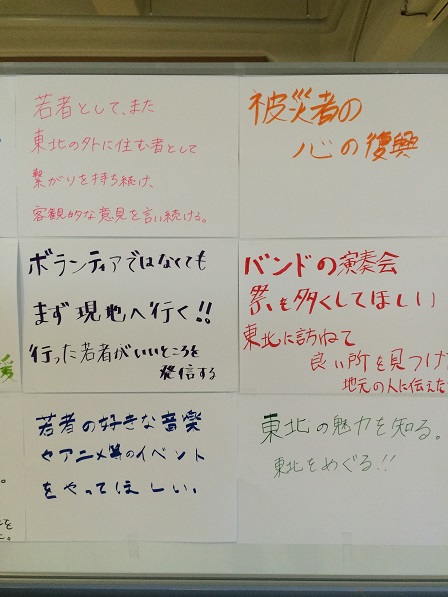 若者として、また
東北の外に住む者として
繋がりを持ち続け、
客観的な意見を言い続ける。
被災者の
心の復興
ボランティアではなくても
まず現地へ行く!!
行った若者がいいところを
発信する
バンドの演奏会
祭も多くしてほしい
東北に訪ねて
良い所を見つけ
地元の人に伝えた
若者の好きな音楽
やアニメ等のイベント
をやってほしい。
東北の魅力を知る。
東北をめぐる!!
援